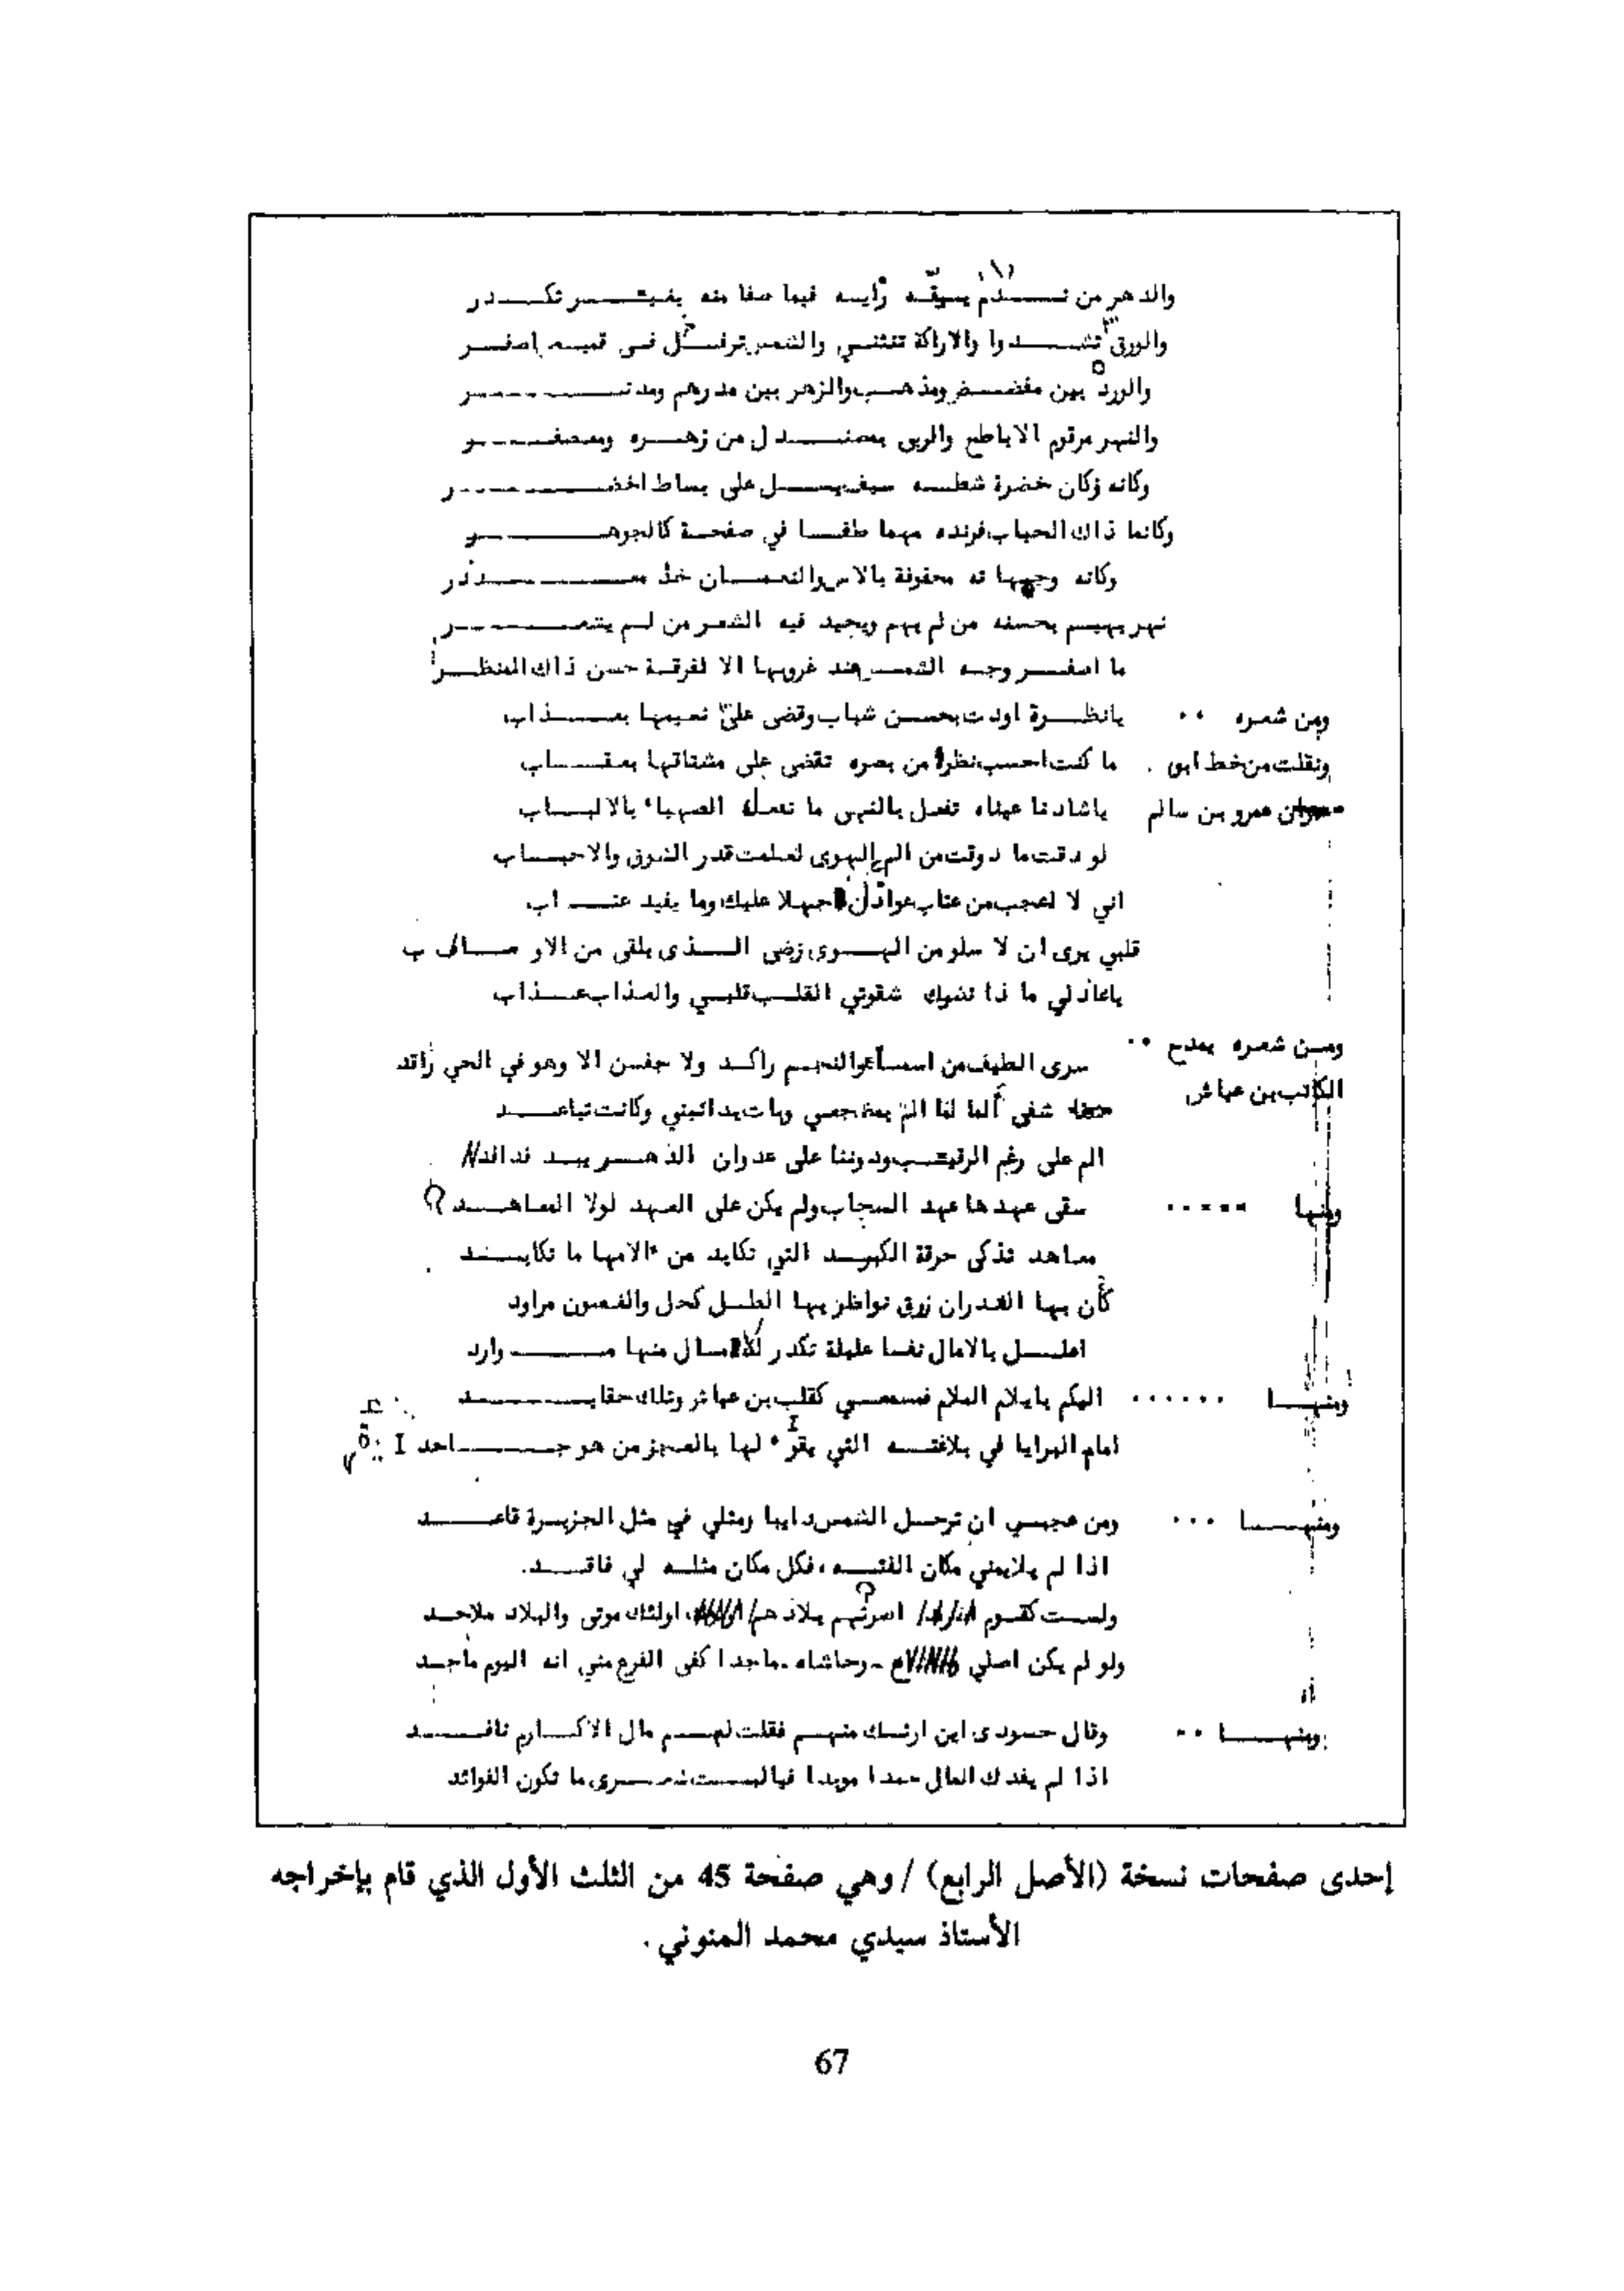 والدهر من نـــدم يسفّه رأيه فيما صفا منه بغير تكــدر
والورق تشــدوا والاراكة تنثنــي والشمس ترفــل فــي قميصه اصفــر
والورد بين مفضــض ومذهــب والزهر بين مدرهم ومدنــــر
والنهر مرقوم الاباطح والربى بمصنــدل من زهــره ومعصفــر
وكانه وكان خضرة شطــه سيف يســل على بساط اخضــــر
وكانما ذاك الحباب فرنده مهما طفــا في صفحــة كالجوهــــر
وكانه وجهاته محفوفة بالاس والنعمــان خد معــــذر
نهر يهيــم بحسنه من لم يهم ويجيد فيه الشعــر من لــم يشعــــر
ما اصفــر وجــه الشمــس عند غروبها الا لفرقــة حسن ذاك المنظــر
ومن شعره ٠٠ يانظــرة اودت بحســن شباب وقضى عليّ نعيمها بعــذاب
ونقلت من خط ابو . ما كنت احسب نظرة من بصره تقضى على مشتاقها بعقــاب
عمرو بن سالم ياشادنا عيناه تفعل بالنهى ما تفعل الصهباء بالالبــاب
لو ذقت ما ذوقت من الم الهوى لعلمت قدر الشوق والاحبــاب
اني لا لعجب من عتاب عواذل جهلا عليك وما يفيد عتــاب
قلبي يرى ان لا سلو من الهــوى رضى الــذى يلقى من الاوصــاب
ياعاذلي ما ذا تضرك شقوتي القلــب قلبــي والعذاب عــذاب
ومــن شعره يمدح ٠٠ سرى الطيف من اسمــاء والنجــم راكــد ولا جفــن الا وهو في الحي راقد
الكاتب بن عياش شفى ألما لما المّ بمضجعي وبات يدانيني وكانت تباعــد
الم على رغم الرقيــب ودوننا على عدوان الدهــر بيــد فدافد
ومنها ٠٠٠٠٠ سقى عهدها عهد السحاب ولم يكن على العهد لولا المعاهــد ؟
معاهد تذكى حرقة الكبــد التي تكابد من الامها ما تكابــد
كأن بها الغدران زرق نواظر بها الطــل كحل والغصون مراود
اعلــل بالامال نفسا عليلة تكدر للامــال منها مــوارد
ومنهــا ٠٠٠٠٠٠ اليكم يايلام الملام فمسمعــي كقلب بن عياش وتلك حقايــــد
امام البرايا في بلاغتــه التي يقر لها بالعجز من هو جــاحد
ومنهــا ٠٠٠ ومن عجبــي ان ترحــل الشمس دايبا ومثلي في مثل الجزيــرة قاعــد
اذا لم يلايمني مكان الفتــه ، فكل مكان مثلــه لي فاقــد .
ولســت كقــوم اسرتهم بلادهم اولئك موتى والبلاد ملاحــد
ولو لم يكن اصلي - وحاشاه - ماجدا كفى الفرع مني انه اليوم ماجــد
ومنهــا ٠٠ وقال حسودى اين ارثــك منهــم فقلت لهــم مال الاكــارم نافــد
اذا لم يفدك المال حمدا موبدا فياليــت شعــرى ما تكون الفوائد
إحدى صفحات نسخة (الأصل الرابع) / وهي صفحة 45 من الثلث الأول الذي قام بإخراجه
الأستاذ سيدي محمد المنوني .
67